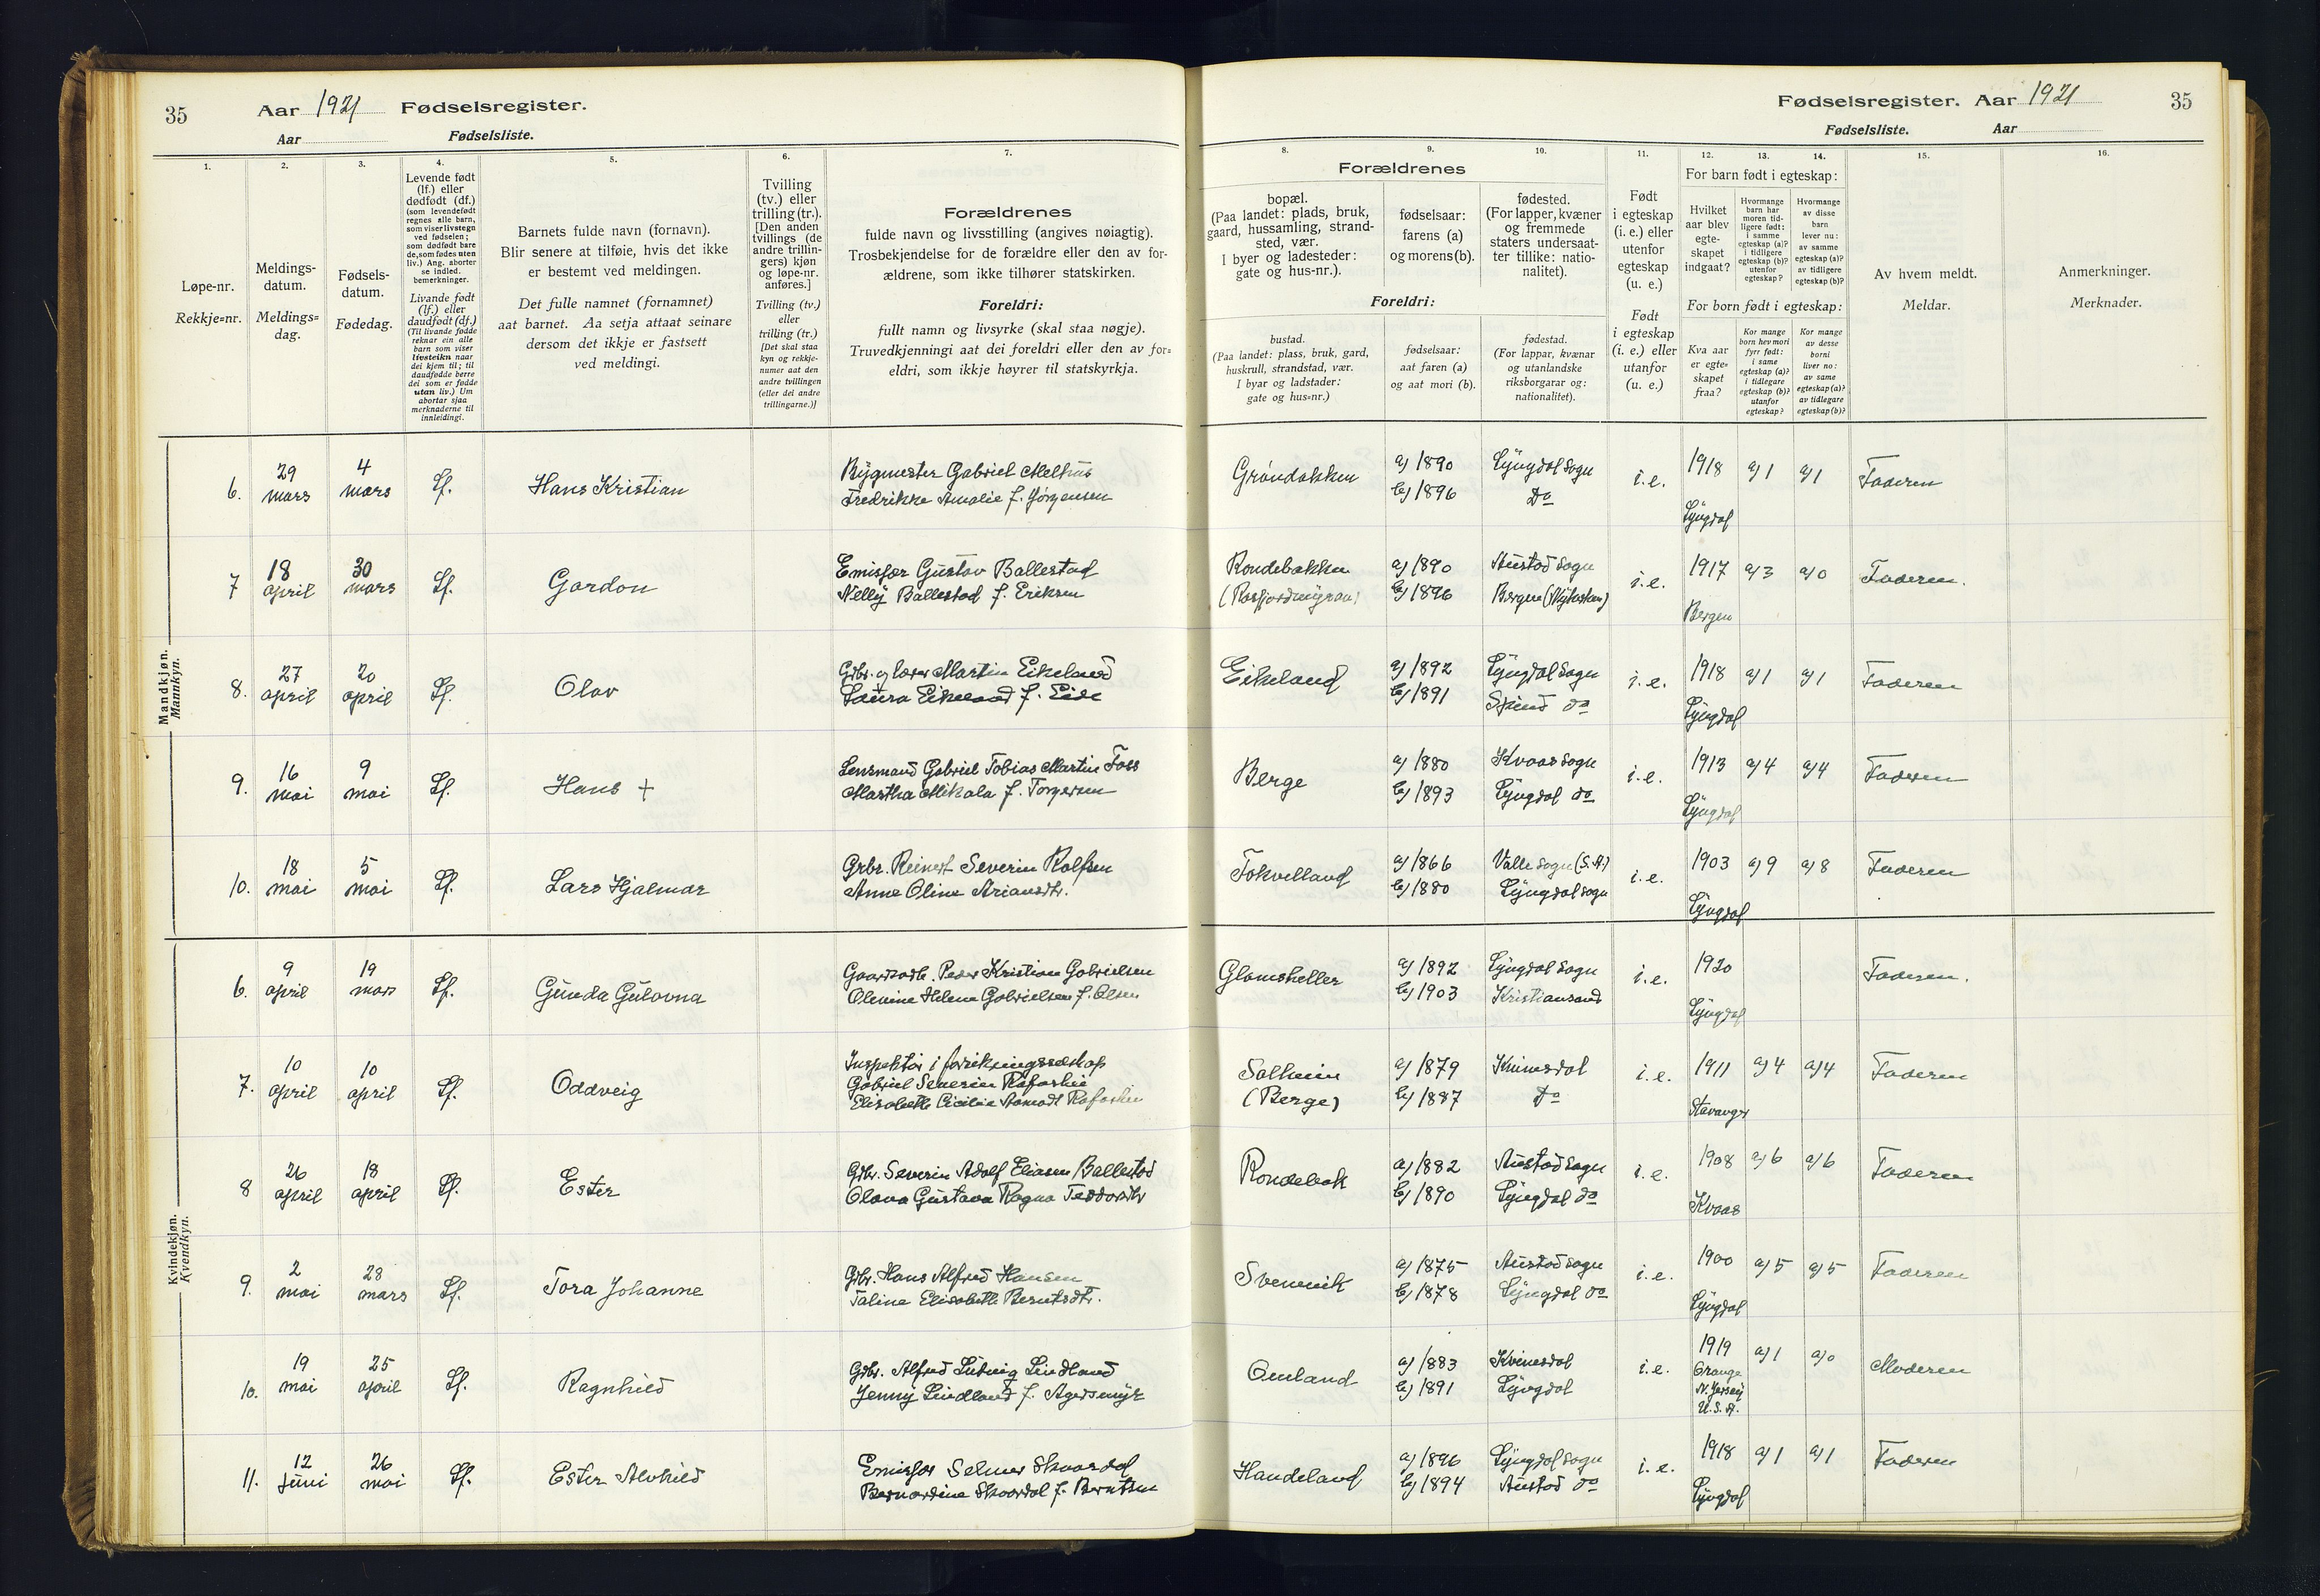 35
Aar 1921 Fødselsregister.
Aar Fødselsliste.
1.
2.
3.
4.
5.
6.
7.
Løpe-nr.
Rekkje=nr.
Meldings-
datum.
Meldings=
dag.
Fødsels-
datum.
Fødedag.
Levende født
(lf.) eller
dødfødt (df.)
(som levendefødt
regnes alle barn,
som viser livstegn
ved fødselen;
som dødfødt bare
de, som fødes uten
liv.) Ang. aborter
se indled.
bemerkninger.
Livande født
(lf.) eller
daudfødt (df.)
(Til livande fødde
reknar ein alle
barn som viser
livsteikn naar
dei kjem til; til
daudfødde berre
dei som er fødde
utan liv.) Um
abortar sjaa
merknaderne til
innleidingi.
Barnets fulde navn (fornavn).
Blir senere at tilføie, hvis det ikke
er bestemt ved meldingen.
Det fulle namnet (fornamnet)
aat barnet. Aa setja attaat seinare
dersom det ikkje er fastsett
ved meldingi.
Tvilling
(tv.) eller
trilling (tr.).
[Den anden
tvillings (de
andre trillin-
gers) kjøn
og løpe-nr.
anføres.]
Tvilling (tv.)
eller
trilling (tr.)
[Det skal staa
kyn og rekkje-
numer aat den
andre tvillingen
(eller dei andre
trillingarne.)]
Forældrenes
fulde navn og livsstilling (angives nøiagtig).
Trosbekjendelse for de forældre eller den av for-
ældrene, som ikke tilhører statskirken.
Foreldri:
fullt namn og livsyrke (skal staa nøgje).
Truvedkjenningi aat dei foreldri eller den av for=
eldri, som ikkje høyrer til statskyrkja.
Fødselsregister. Aar 1921 35
Fødselsliste. Aar
8.
9.
10.
11.
12.
13.
14.
15.
16.
Forældrenes
bopæl.
(Paa landet: plads, bruk,
gaard, hussamling, strand-
sted, vær.
I byer og ladesteder:
gate og hus-nr.).
fødselsaar:
farens (a)
og morens (b).
fødested.
(For lapper, kvæner
og fremmede
staters undersaat-
ter tillike: natio-
nalitet).
Foreldri:
bustad.
(Paa landet: plass, bruk, gard,
huskrull, strandstad, vær.
I byar og ladstader:
gate og hus=nr.)
fødselsaar:
aat faren (a)
og aat mori (b).
fødestad.
(For lappar, kvænar
og utanlandske
riksborgarar og:
nationalitet).
Født
i egteskap
(i. e.) eller
utenfor
egteskap
(u. e.)
Født
i egteskap
(i. e.) eller
utanfor
(u. e.)
For barn født i egteskap:
Hvilket
aar blev
egte-
skapet
indgaat?
Hvormange
barn har
moren tid-
ligere født:
i samme
egteskap (a)?
i tidligere
egteskap (b)?
utenfor
egteskap?
Hvormange
av disse
barn
lever nu:
av samme
egteskap (a)?
av tidligere
egteskap (b)?
For born født i egteskap:
Kva aar
er egte-
skapet
fraa?
Kor mange
born hev mori
fyrr født:
i same
egteskap (a)?
i tidlegare
egteskap (b)?
utanfor
egteskap?
Kor mange
av desse
borni
liver no:
av same
egteskap (a)?
av tidlegare
egteskap (b)?
Av hvem meldt.
Meldar.
Anmerkninger.
Merknader.
Mandkjøn.
Mannkyn.
6. 29 mars 4 mars Lf. Hans Kristian
Bygmester Gabriel Melhus
Fredrikke Amalie f. Jørgensen
Grøndokken a) 1890 Lyngdal sogn i.e. 1918 a) 1 a) 1 Faderen
b) 1896 Do
Lyngdal
7 18 april 30 mars Lf. Gordon
Emissær Gustav Ballestad
Nelly Ballestad f. Eriksen
Rondebakken a) 1890 Austad sogn i.e. 1917 a) 3 a) 0 Faderen.
b) 1896 Bergen
Bergen
8. 27 april 20 april Lf. Olav
Gbr. og lærer Martin Eikeland
Laura Eikeland f. Eide
Eikeland a) 1892 Lyngdal sogn i.e. 1918 a) 1 a) 1 Faderen
b) 1891 do
Lyngdal
9. 16 mai 9 mai Lf. Hans +
Lensmand Gabriel Tobias Martin Foss
Martha Mikala f. Torgersen
Berge a) 1880 Kvaas sogn i.e. 1913 a) 4 a) 4 Faderen
b) 1893 Lyngdal do
Lyngdal
10. 18 mai 5 mai Lf. Lars Hjalmar
Grbr. Reinert Severin Rolfsen
Anne Oline Ariansdtr.
Tokvelland a) 1866 Valle sogn (S. A.) i.e. 1903 a) 9 a) 8 Faderen
b) 1880 Lyngdal sogn
Lyngdal
Kvindekjøn.
Kvendkyn.
6. 9 april 19 mars Lf. Gunda Gulovna
Peder Kristian Gabrielsen
Olevine Helene Gabrielsen f. Olsen
Glomsheller a) 1892 Lyngdal sogn i.e. 1920 Faderen.
b) 1903 Kristiansand
Lyngdal
7. 10 april 10 april Lf. Oddveig
Inspektør i
Gabriel Severin Rafoshei
Elisabeth Cicilie Aamodt Rafoshei
Solheim a) 1879 Kvinesdal i.e. 1911 a) 4 a) 4 Faderen
(Berge) b) 1887 Do
Stavanger
8 26 april 18 april Lf. Ester
Gbr. Severin Adolf Eliasen Ballestad
Olava Gustava Ragna Teodorsdtr
Rondebak a) 1882 Austad sogn i.e. 1908 a) 6 a) 6 Faderen
b) 1890 Lyngdal do
Kvaas
9. 2 mai 28 mars Lf. Tora Johanne
Gbr. Hans Alfred Hansen
Taline Elisabeth Berntsdtr.
Svennevik a) 1875 Austad sogn i.e. 1900 a) 5 a) 5 Faderen
b) 1878 Lyngdal do
Lyngdal
10. 19 mai 25 april Lf. Ragnhild
Gbr. Alfred Ludvig Lindland
Jenny Lindland f. Agersmyr
Omland a) 1883 Kvinesdal i.e. 1919 a) 1 a) 0 Moderen
b) 1891 Lyngdal
Orange
N. Jersey
U. S. A.
11. 12 juni 26 mai Lf. Ester Alvhild
Emissær Selmer Skaardal
Bernardine Skaardal f. Berntsen
Handeland a) 1896 Lyngdal sogn i.e. 1918 a) 1 a) 1 Faderen
b) 1894 Austad do
Lyngdal